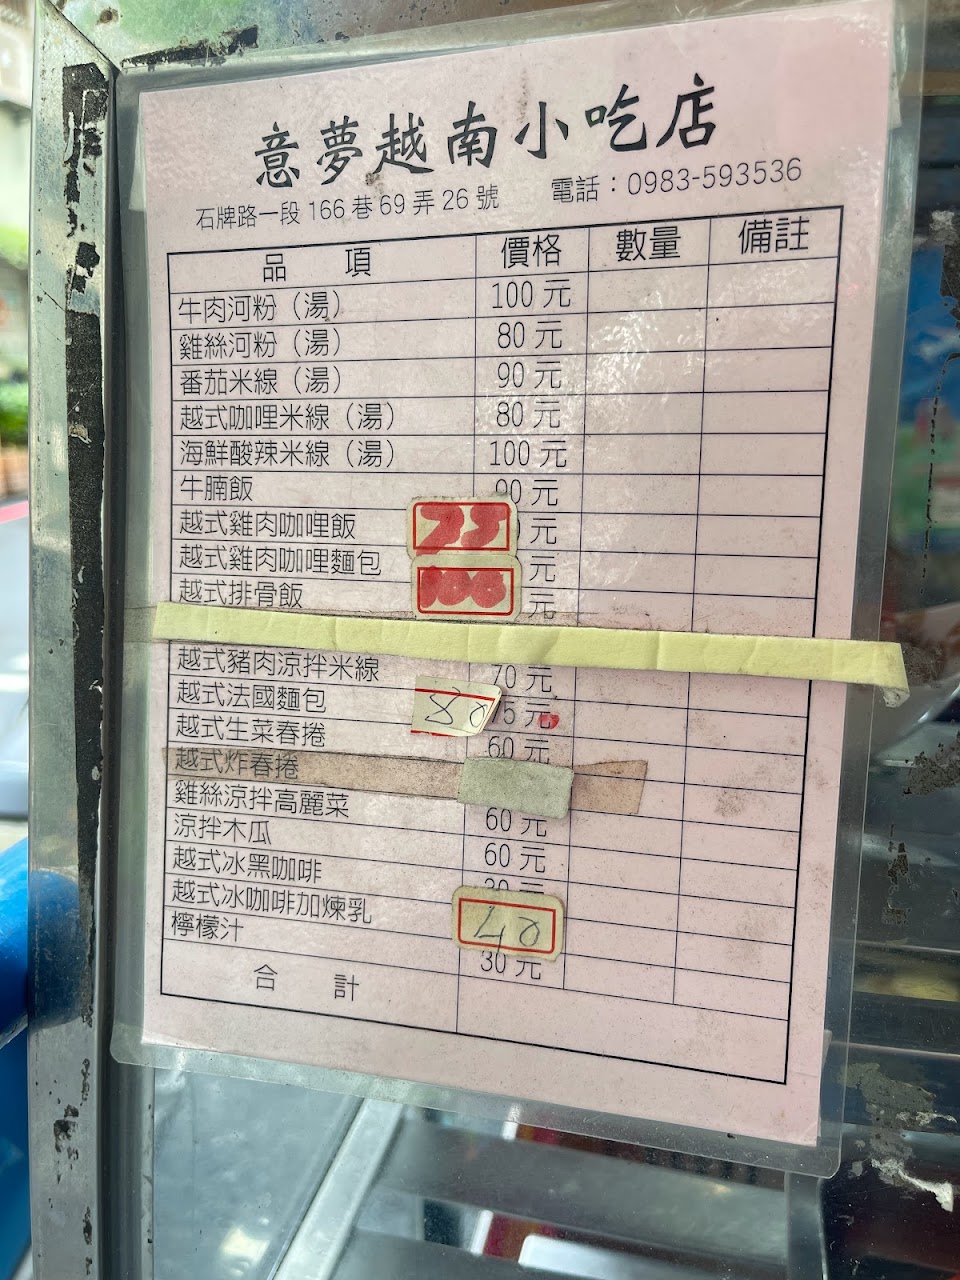 意夢越南小吃店
石牌路一段 166 巷 69 弄 26 號 電話：0983-593536
品 項 價格 數量 備註
牛肉河粉（湯） 100 元
雞絲河粉（湯） 80 元
番茄米線（湯） 90 元
越式咖哩米線（湯） 80 元
海鮮酸辣米線（湯） 100 元
牛腩飯 90 元
越式雞肉咖哩飯 75 元
越式雞肉咖哩麵包 元
越式排骨飯 100 元
越式豬肉涼拌米線 70 元
越式法國麵包 80 75 元
越式生菜春捲 60 元
越式炸春捲
雞絲涼拌高麗菜 60 元
涼拌木瓜 60 元
越式冰黑咖啡 30 元
越式冰咖啡加煉乳 40
檸檬汁 30 元
合 計